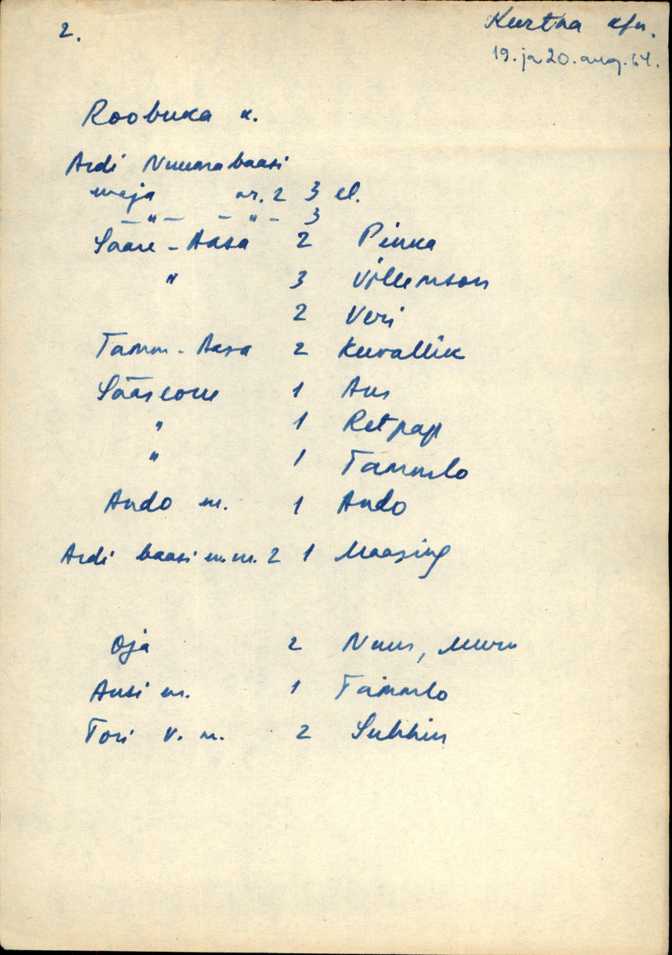 2.
Kurtna
19. ja 20. aug. 64.
Roobuka k.
Ardi Nuumabaasi
maja nr. 2 3 el.
– " – – " – 3
Saare - Aasa 2 Pinka
" 3 Villemson
2 Veri
Tamm - Aasa 2 Kuvallik
Sääseoru 1 Aus
" 1 Retpap
" 1 Tammlo
Ando m. 1 Ando
Ardi baasi m. 2 1 Maasing
Oja 2 Nuur, Muru
Ansi m. 1 Tammlo
Tori v. m. 2 Suhhin